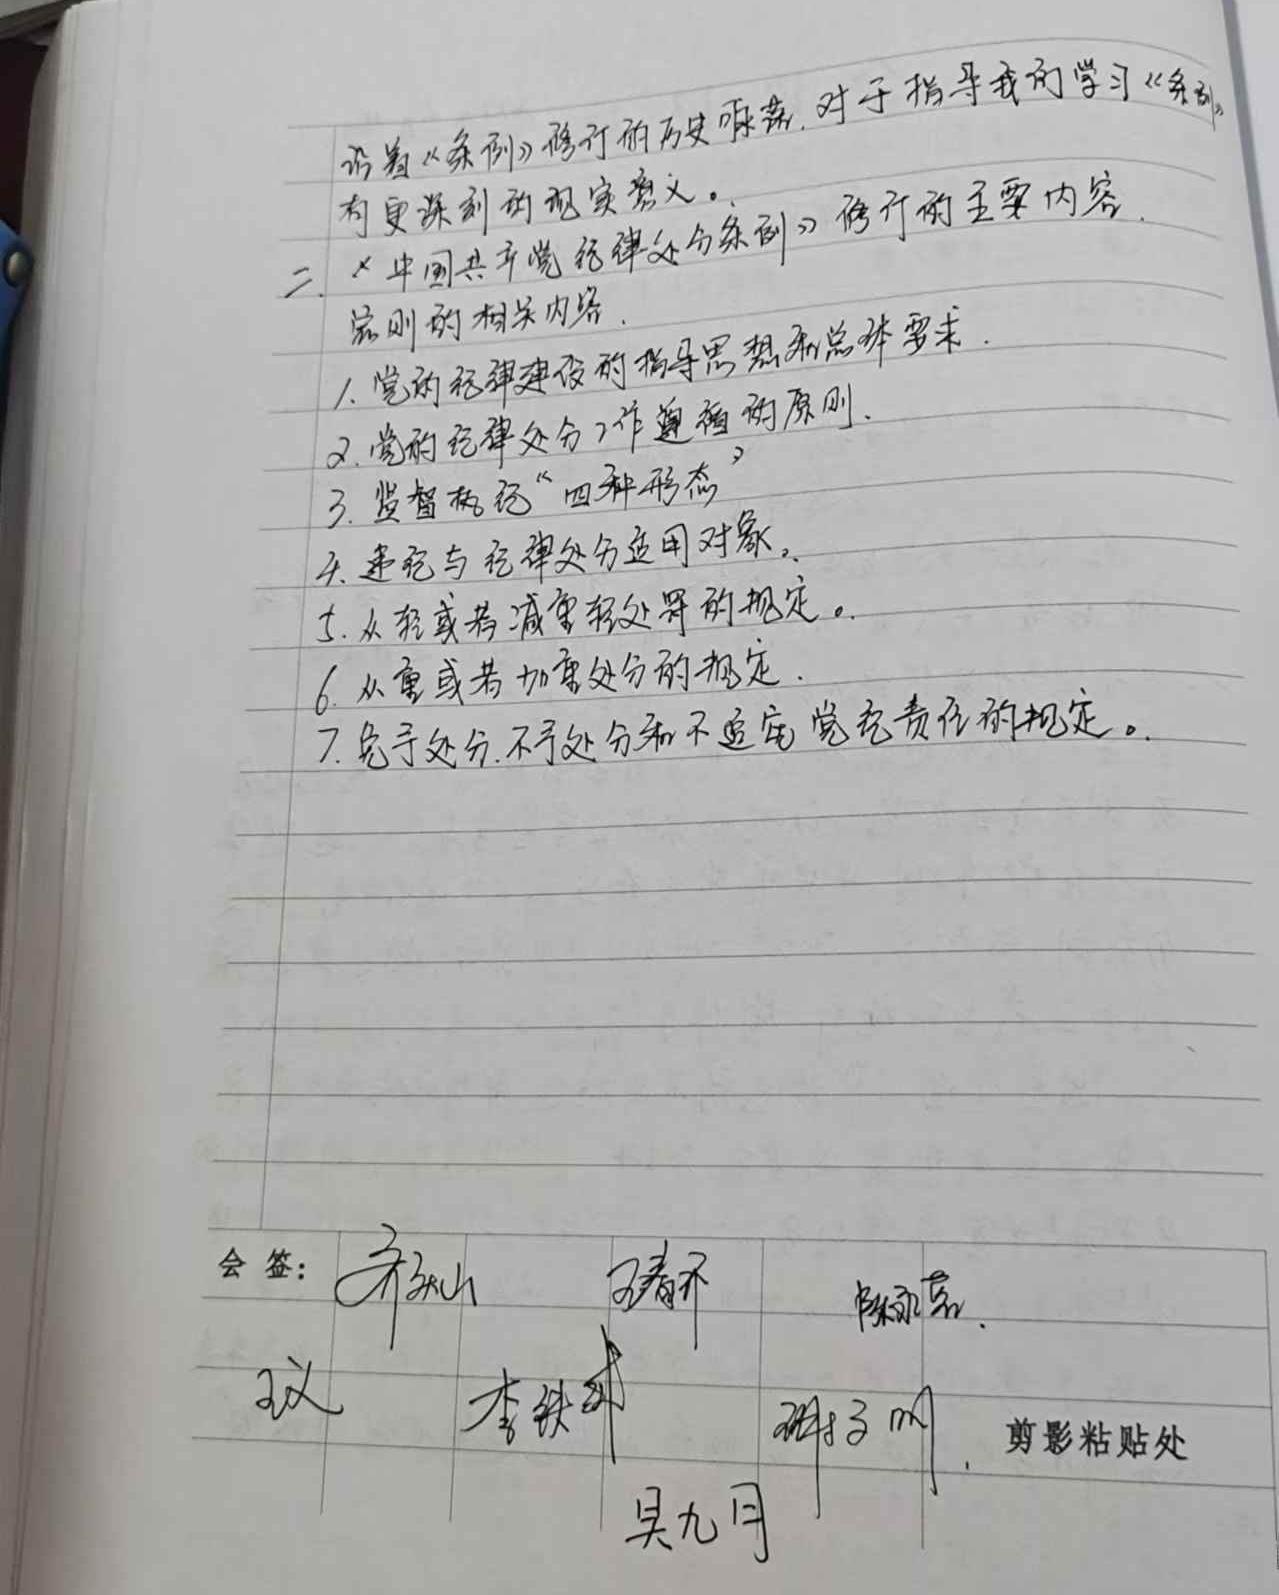 沿着《条例》修订的历史脉落，对于指导我们学习《条例》
有更深刻的现实意义。
二、《中国共产党纪律处分条例》修订的主要内容．
总则的相关内容．
1. 党的纪律建设的指导思想和总体要求．
2. 党的纪律处分工作遵循的原则．
3. 监督执纪“四种形态”
4. 违纪与纪律处分适用对象。
5. 从轻或者减轻处分的规定。
6. 从重或者加重处分的规定．
7. 免予处分．不予处分和不追究党纪责任的规定。
会 签：
李铁
剪影粘贴处
吴九月